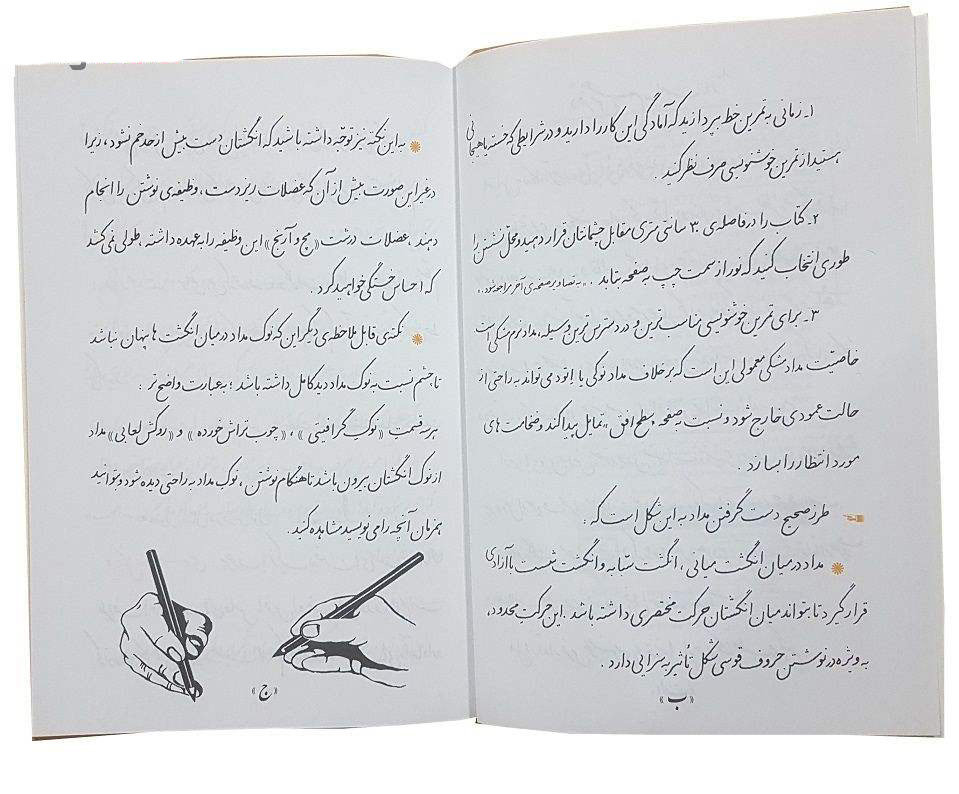 ۱- زمانی به تمرین خط بپردازید که آمادگی این کار را دارید و در شرایطی که خسته یا هیجانی
هستید از تمرین خوشنویسی صرف نظر کنید.
۲- کتاب را در فاصله‌ی ۳۰ سانتی متری مقابل چشمانتان قرار دهید و محل نشستن را
طوری انتخاب کنید که نور از سمت چپ به صفحه بتابد. «به تصاویر صفحه‌ی آخر مراجعه شود.»
۳- برای تمرین خوشنویسی مناسب ترین و در دسترس ترین وسیله، مداد نرم مشکی است
خاصیّت مداد مشکی معمولی این است که بر خلاف مداد نوکی یا اتود می تواند به راحتی از
حالت عمودی خارج شود و نسبت به صفحه «سطح افق» تمایل پیدا کند و ضخامت های
مورد انتظار را بسازد.
طرز صحیح دست گرفتن مداد به این شکل است که:
مداد در میان انگشت میانی، انگشت سبّابه و انگشت شست با آزادی
قرار گیرد تا بتواند میان انگشتان حرکت مختصری داشته باشد. این حرکت محدود،
به ویژه در نوشتن حروف قوسی شکل تأثیر به سزایی دارد.
«ب»
به این نکته نیز توجّه داشته باشید که انگشتان دست بیش از حد خم نشود، زیرا
در غیر این صورت بیش از آن که عضلات ریز دست، وظیفه‌ی نوشتن را انجام
دهند، عضلات درشت «مچ و آرنج» این وظیفه را به عهده داشته، طولی نمی کشد
که احساس خستگی خواهید کرد.
نکته‌ی قابل ملاحظه‌ی دیگر این که نوک مداد در میان انگشت ها پنهان نباشد
تا چشم نسبت به نوک مداد دید کامل داشته باشد؛ به عبارت واضح تر:
هر سه قسمت «نوک گرافیتی»، «چوب تراش خورده» و «روکش لعابی» مداد
از نوک انگشتان بیرون باشد تا هنگام نوشتن، نوک مداد به راحتی دیده شود و بتوانید
همزمان آنچه را می نویسید مشاهده کنید.
«ج»